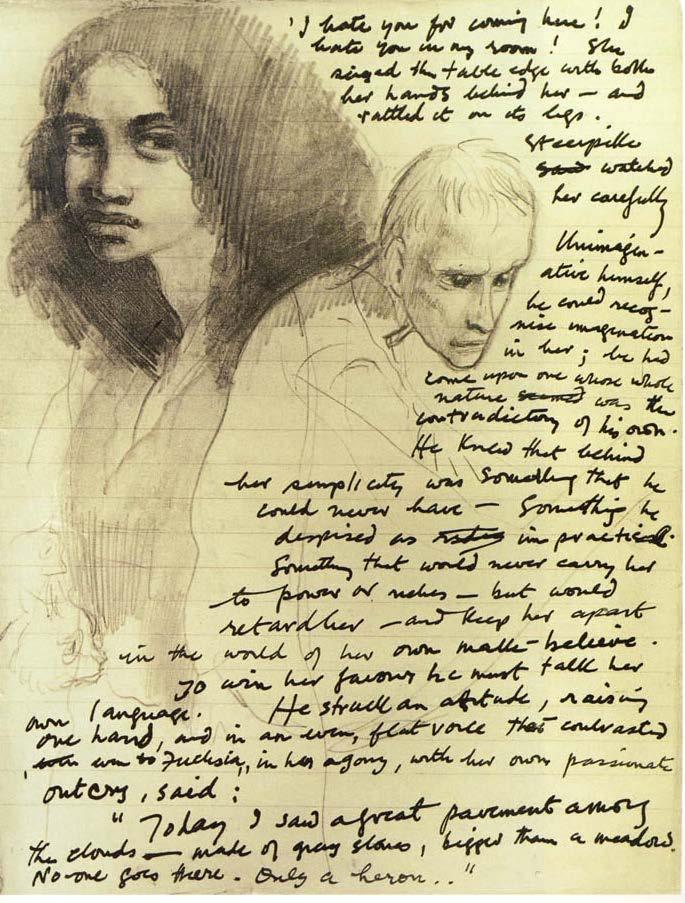 'I hate you for coming here! I
hate you in my room! She
seized the table edge with both
her hands behind her — and
rattled it on its legs.
Steerpike
said watched
her carefully
Unimagin-
ative himself,
he could recog-
nise imagination
in her; he had
come upon one whose whole
nature seemed was the
contradictory of his own.
He knew that behind
her simplicity was something that he
could never have — Something he
despised as impractical.
Something that would never carry her
to power or riches — but would
retard her — and keep her apart
in the world of her own make-believe.
To win her favour he must talk her
own language. He struck an attitude, raising
one hand, and in an even, flat voice that contrasted
even to Fuchsia, in her agony, with her own passionate
outcry, said:
"Today I saw a great pavement among
the clouds — made of gray stones, bigger than a meadow.
No-one goes there. Only a heron.."